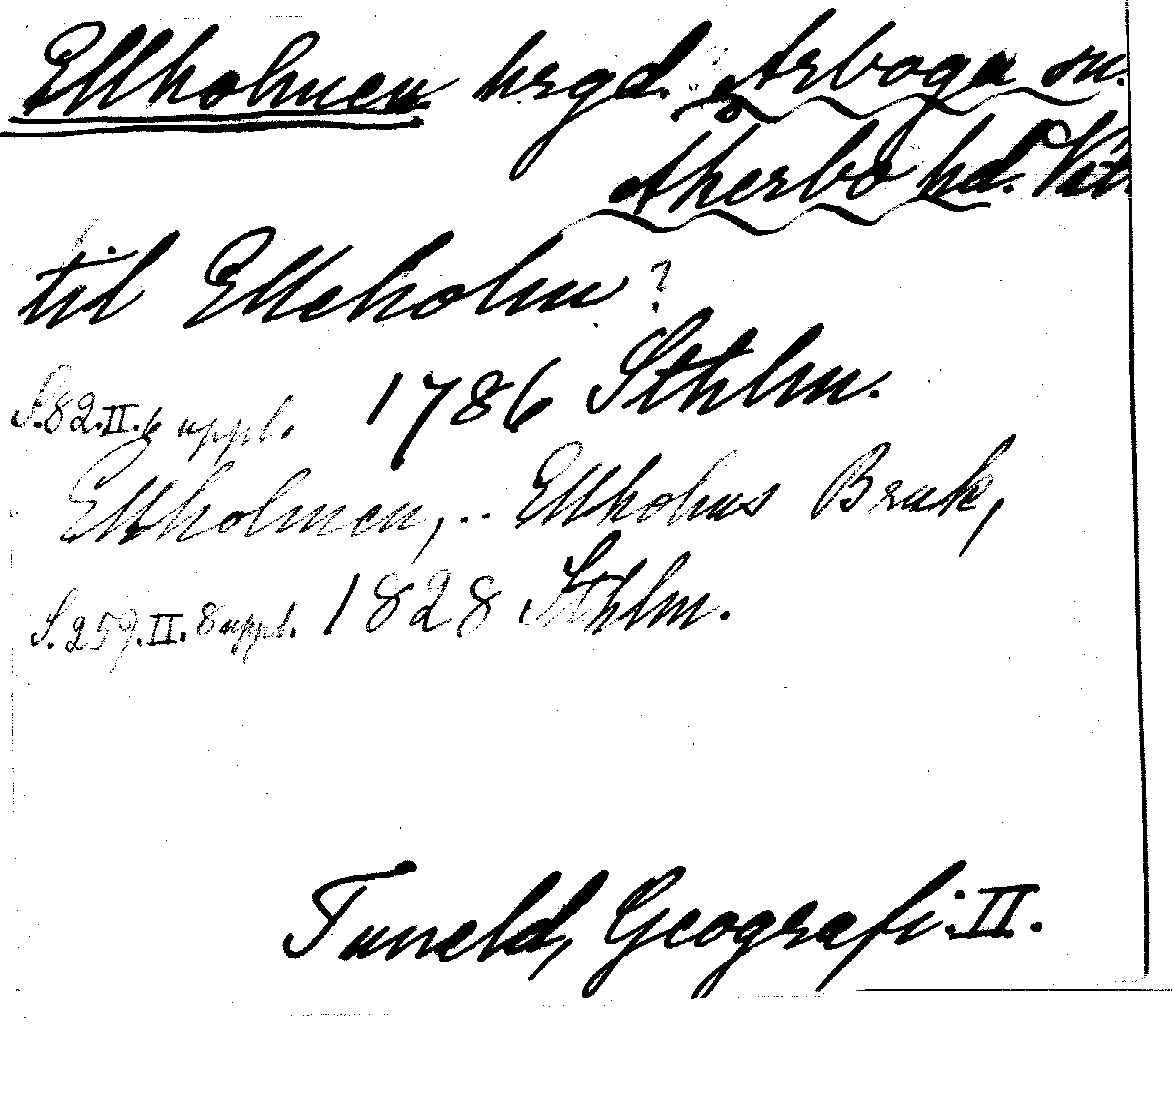 Ellholmen hrgd. Arboga sn.
Åkerbo hd. Väst
til Elleholm?
S.82.II.6 uppl. 1786 Sthlm.
Ellholmen,.. Ellholms Bruk,
S.259.II.8 uppl. 1828 Sthlm.
Tuneld, Geografi.II.